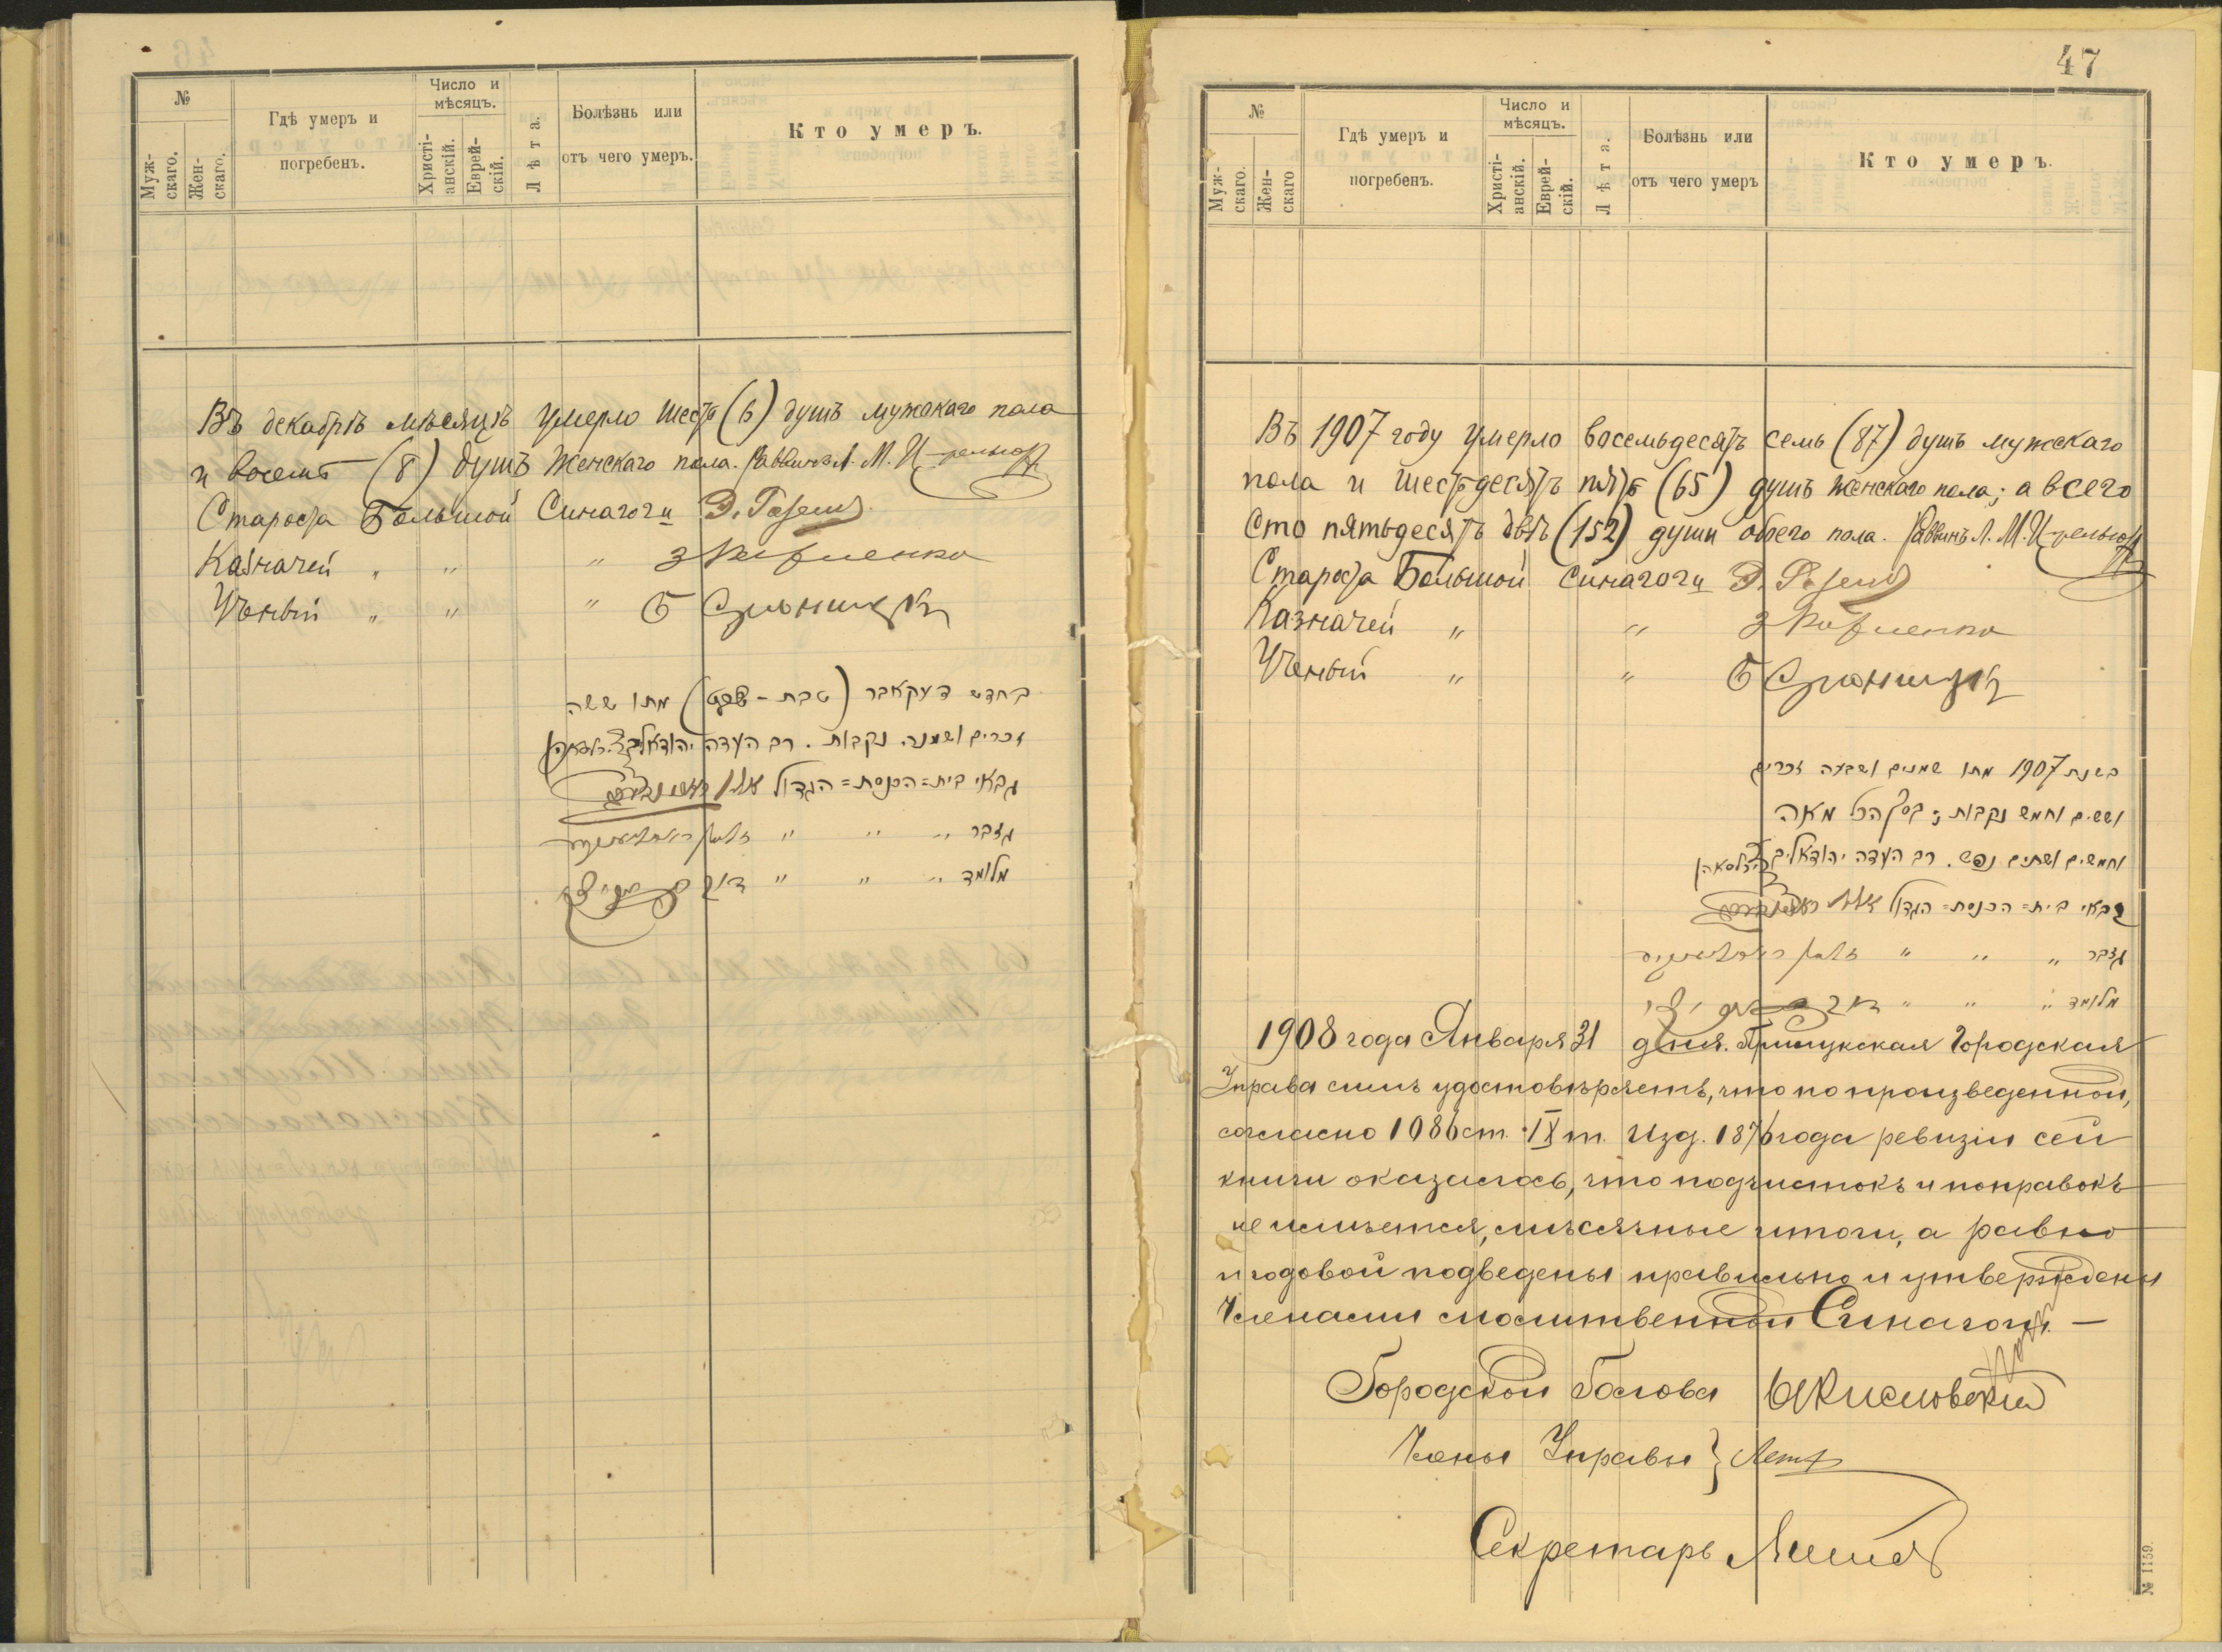 №
Муж-
скаго.
Жен-
скаго.
Гдѣ умеръ и
погребенъ.
Число и
мѣсяцъ.
Христі-
анскій.
Еврей-
скій.
Лѣта.
Болѣзнь или
отъ чего умеръ.
Кто умеръ.
Въ декабрѣ мѣсяцѣ умерло шесть (6) душъ мужскаго пола
и восемь (8) душъ женскаго пола. Раввинъ Л. М.
Староста Большой Синагоги
Казначей " " "
Ученый " " "
בחדש דעקאבר (טבת - שבט) מתו ששה
זכרים ושמנה נקבות. רב העדה
גבאי בית=הכנסת=הגדול
גזבר " " "
מלומד " " "
47
№
Муж-
скаго.
Жен-
скаго
Гдѣ умеръ и
погребенъ.
Число и
мѣсяцъ.
Христі-
анскій.
Еврей-
скій.
Лѣта.
Болѣзнь или
отъ чего умеръ
Кто умеръ.
Въ 1907 году умерло восемьдесятъ семь (87) душъ мужскаго
пола и шестьдесятъ пять (65) душъ женскаго пола; а всего
сто пятьдесятъ двѣ (152) души обоего пола. Раввинъ Л. М.
Староста Большой Синагоги
Казначей " "
Ученый " "
בשנת 1907 מתו שמנים ושבעה זכרים
וששים וחמש נקבות; בסך הכל מאה
וחמשים ושתים נפש. רב העדה
גבאי בית=הכנסת=הגדול
גזבר " " "
מלומד " " "
1908 года Января 31 дня. Прилукская Городская
Управа симъ удостовѣряетъ, что по произведенной,
согласно 1086 ст. IX т. Изд. 1876 года ревизіи сей
книги оказалось, что подчистокъ и поправокъ
не имѣется, мѣсячные итоги, а равно
и годовой подведены правильно и утверждены
Членами молитвенной Синагоги. —
Городской Голова
Члены Управы }
Секретарь
№ 1159.